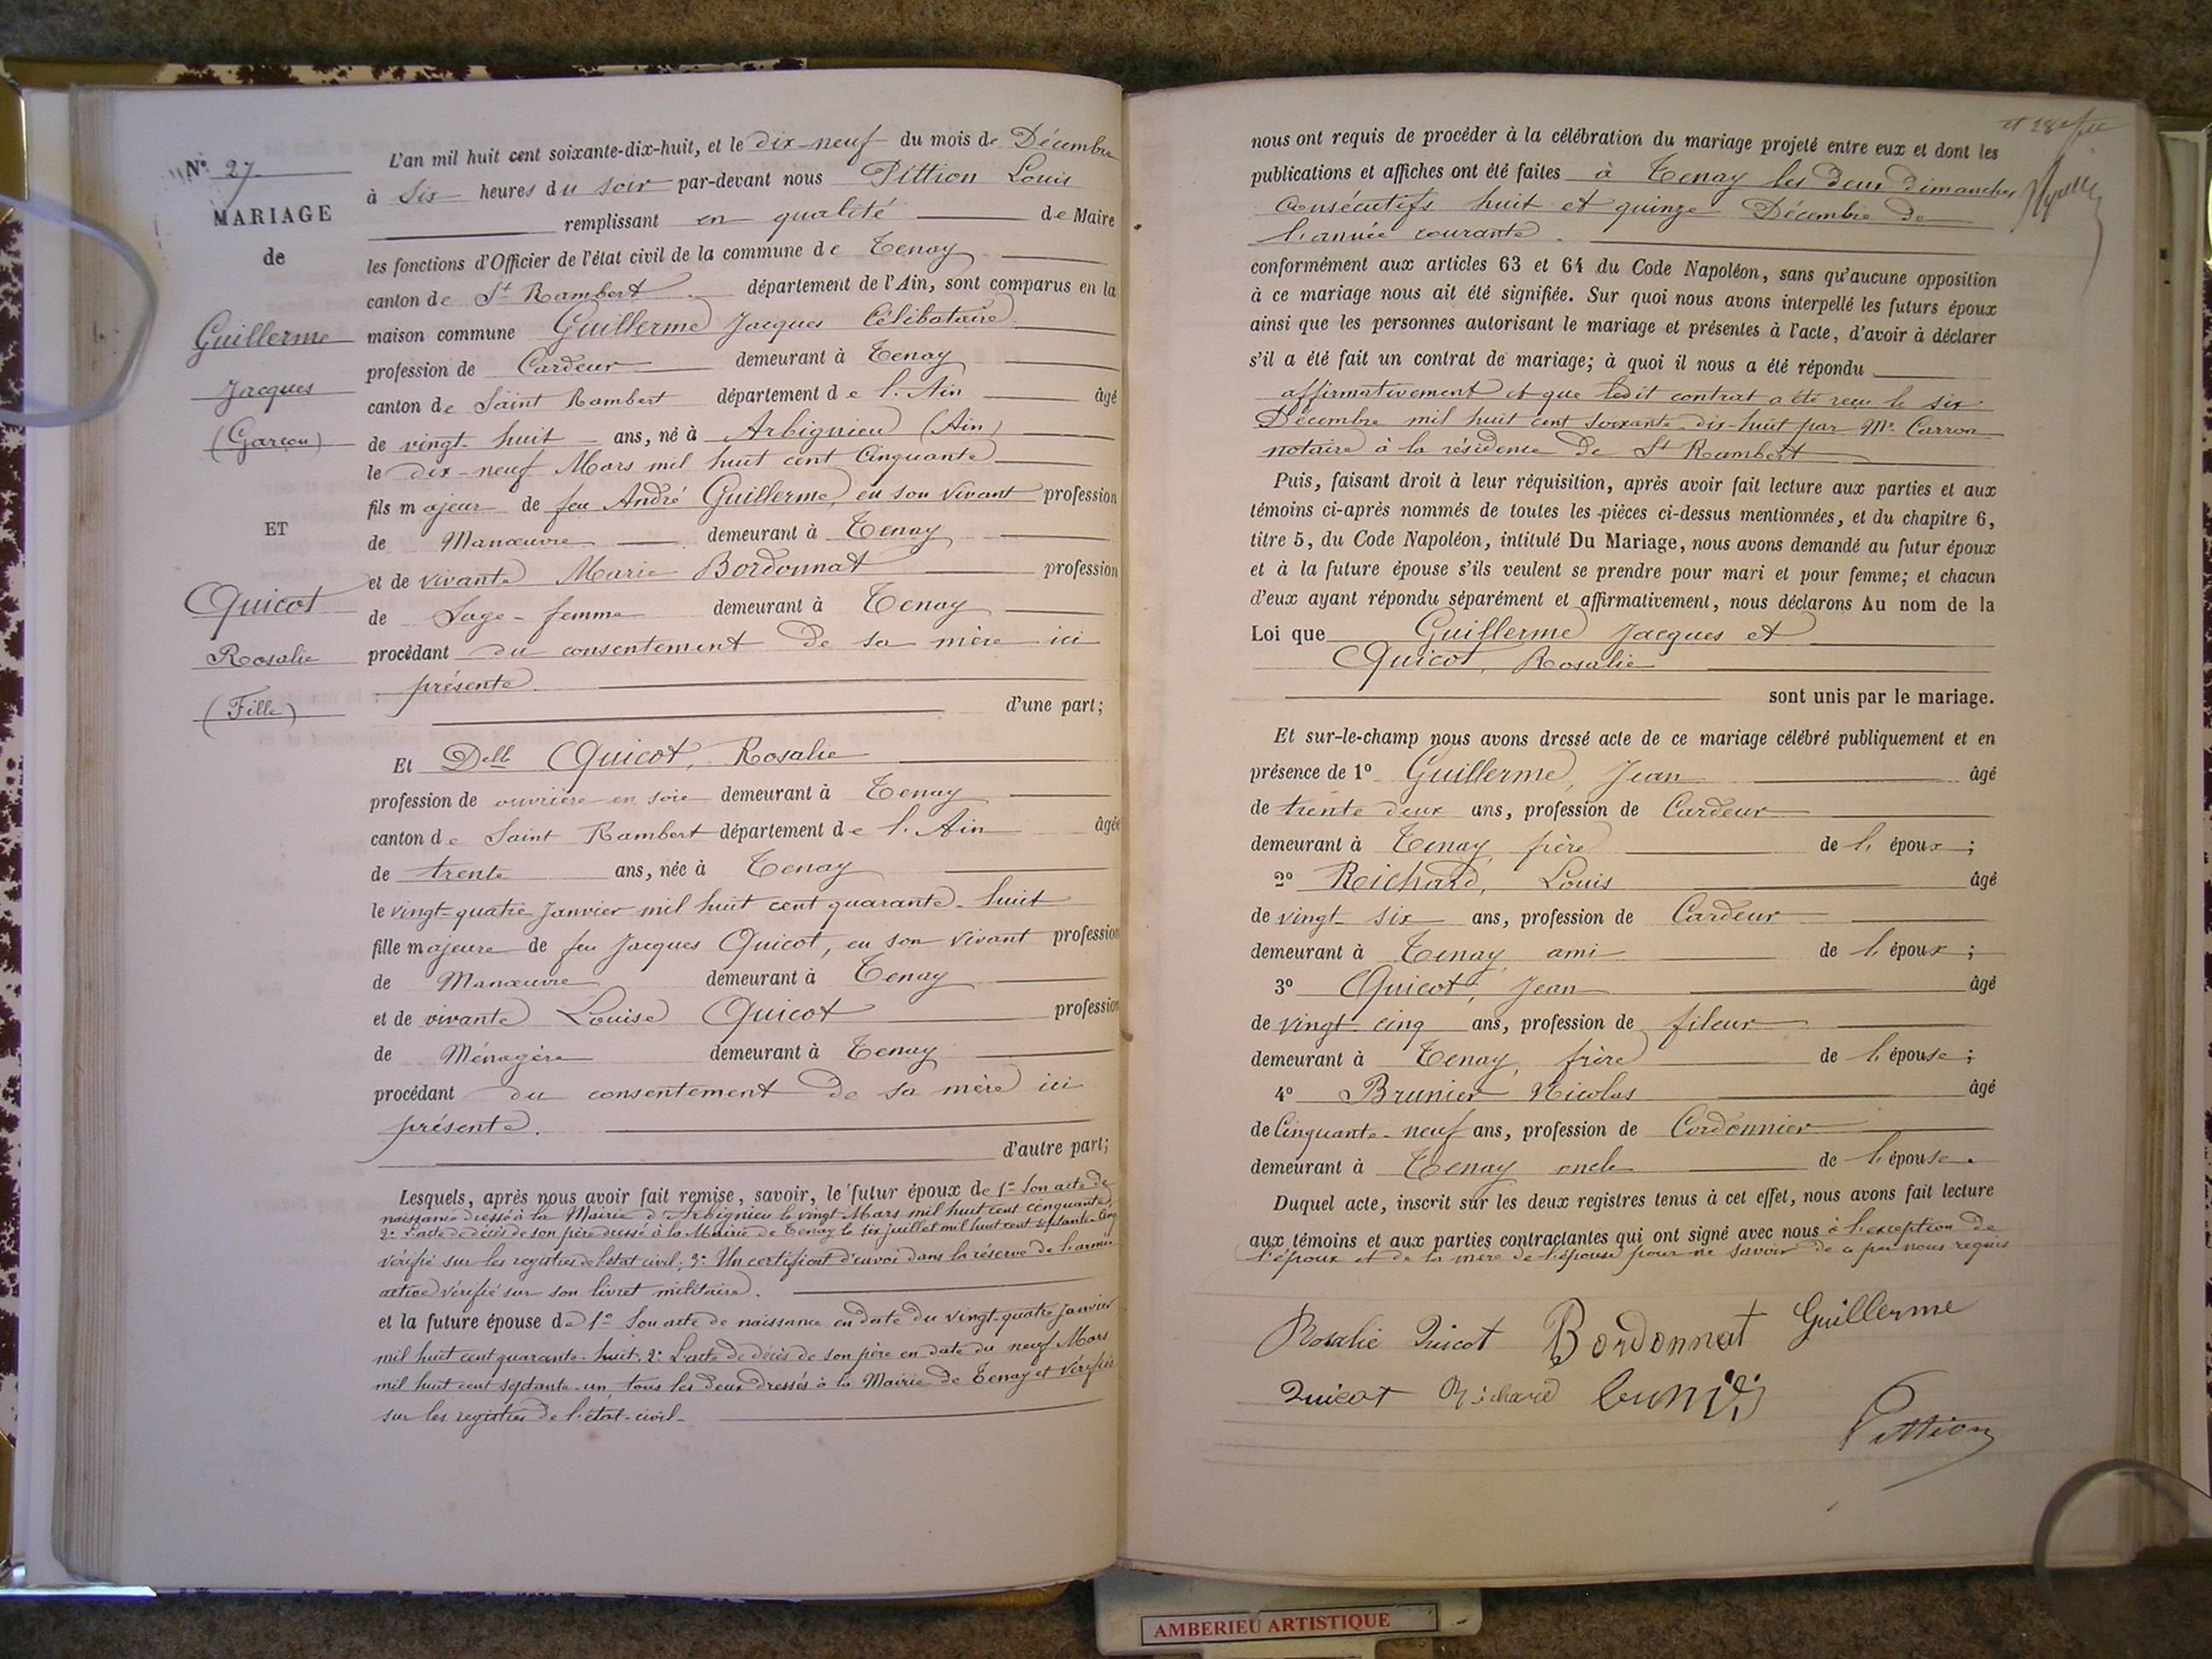 N° 27
MARIAGE
de
Guillerme
Jacques
(Garçon)
ET
Quicot
Rosalie
(Fille)
L'an mil huit cent soixante-dix-huit, et le dix-neuf du mois de Décembre
à Six heures du soir par-devant nous Pittion Louis
remplissant en qualité de Maire
les fonctions d'Officier de l'état civil de la commune de Tenay
canton de St Rambert département de l'Ain, sont comparus en la
maison commune Guillerme Jacques Célibataire
profession de Cardeur demeurant à Tenay
canton de Saint Rambert département de l'Ain âgé
de vingt-huit ans, né à Arbignieu (Ain)
le dix-neuf Mars mil huit cent Cinquante
fils majeur de feu André Guillerme, en son vivant profession
de Manœuvre demeurant à Tenay
et de vivante Marie Bordonnat profession
de Sage-femme demeurant à Tenay
procédant du consentement de sa mère ici
présente.
d'une part;
Et Delle Quicot, Rosalie
profession de ouvrière en soie demeurant à Tenay
canton de Saint Rambert département de l'Ain âgée
de trente ans, née à Tenay
le vingt-quatre Janvier mil huit cent quarante-huit
fille majeure de feu Jacques Quicot, en son vivant profession
de Manœuvre demeurant à Tenay
et de vivante Louise Quicot profession
de Ménagère demeurant à Tenay
procédant du consentement de sa mère ici
présente.
d'autre part;
Lesquels, après nous avoir fait remise, savoir, le futur époux de 1° Son acte de
naissance dressé à la Mairie d'Arbignieu le vingt Mars mil huit cent cinquante,
2° L'acte de décès de son père dressé à la Mairie de Tenay le six juillet mil huit cent septante-cinq
vérifié sur les registres de l'état civil; 3° Un certificat d'envoi dans la réserve de l'armée
active vérifié sur son livret militaire.
et la future épouse de 1° Son acte de naissance en date du vingt-quatre Janvier
mil huit cent quarante-huit; 2° L'acte de décès de son père en date du neuf Mars
mil huit cent septante-un, tous les deux dressés à la Mairie de Tenay et vérifiés
sur les registres de l'état-civil-
nous ont requis de procéder à la célébration du mariage projeté entre eux et dont les
publications et affiches ont été faites à Tenay les deux dimanches
consécutifs huit et quinze Décembre de
l'année courante.
conformément aux articles 63 et 64 du Code Napoléon, sans qu'aucune opposition
à ce mariage nous ait été signifiée. Sur quoi nous avons interpellé les futurs époux
ainsi que les personnes autorisant le mariage et présentes à l'acte, d'avoir à déclarer
s'il a été fait un contrat de mariage; à quoi il nous a été répondu
affirmativement et que ledit contrat a été reçu le six
Décembre mil huit cent soixante-dix-huit par Me Carron
notaire à la résidence de St Rambert
Puis, faisant droit à leur réquisition, après avoir fait lecture aux parties et aux
témoins ci-après nommés de toutes les pièces ci-dessus mentionnées, et du chapitre 6,
titre 5, du Code Napoléon, intitulé Du Mariage, nous avons demandé au futur époux
et à la future épouse s'ils veulent se prendre pour mari et pour femme; et chacun
d'eux ayant répondu séparément et affirmativement, nous déclarons Au nom de la
Loi que Guillerme Jacques et
Quicot, Rosalie
sont unis par le mariage.
Et sur-le-champ nous avons dressé acte de ce mariage célébré publiquement et en
présence de 1° Guillerme, Jean âgé
de trente deux ans, profession de Cardeur
demeurant à Tenay, frère de l'époux;
2° Richard, Louis âgé
de vingt-six ans, profession de Cardeur
demeurant à Tenay ami de l'époux;
3° Quicot, Jean âgé
de vingt-cinq ans, profession de fileur
demeurant à Tenay, frère de l'épouse;
4° Brunier Nicolas âgé
de Cinquante-neuf ans, profession de Cordonnier
demeurant à Tenay oncle de l'épouse.
Duquel acte, inscrit sur les deux registres tenus à cet effet, nous avons fait lecture
aux témoins et aux parties contractantes qui ont signé avec nous à l'exception de
l'époux et de la mère de l'épouse pour ne savoir de ce par nous requis
Rosalie Quicot Bordonnat Guillerme
Quicot Richard
Pittion
AMBERIEU ARTISTIQUE